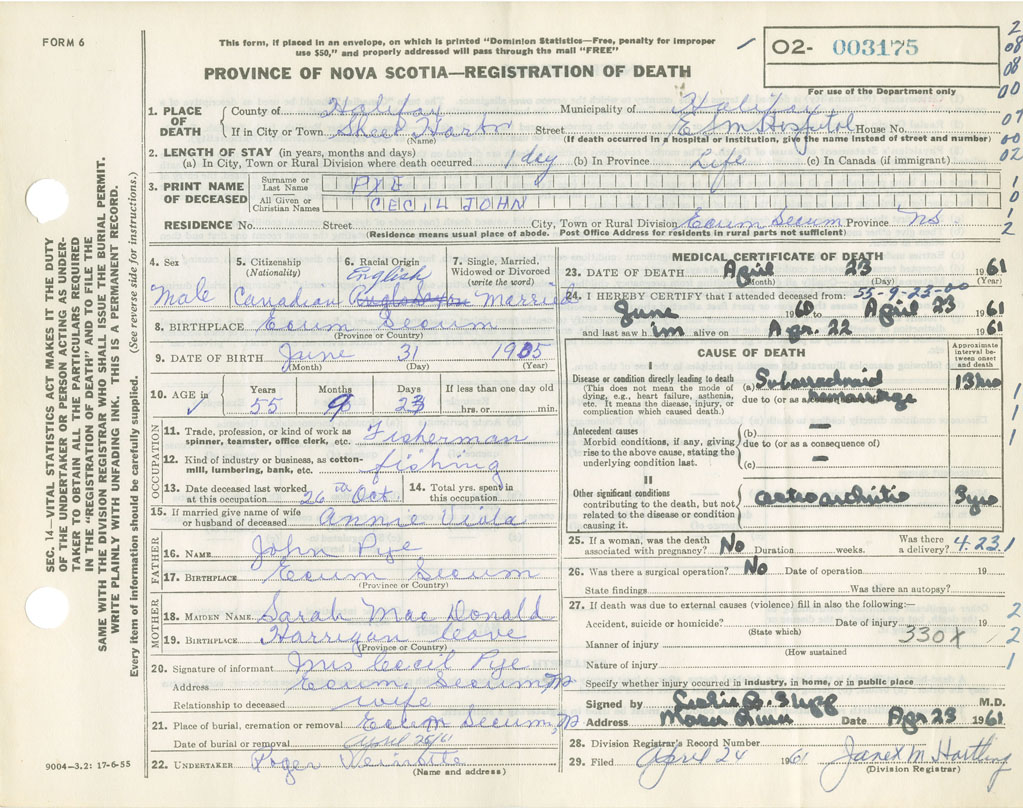 FORM 6
This form, if placed in an envelope, on which is printed "Dominion Statistics—Free, penalty for improper
use $50," and properly addressed will pass through the mail "FREE"
PROVINCE OF NOVA SCOTIA—REGISTRATION OF DEATH
02- 003175
For use of the Department only
2
08
08
00
07
00
02
1
0
1
2
SEC. 14—VITAL STATISTICS ACT MAKES IT THE DUTY
OF THE UNDERTAKER OR PERSON ACTING AS UNDER-
TAKER TO OBTAIN ALL THE PARTICULARS REQUIRED
IN THE "REGISTRATION OF DEATH" AND TO FILE THE
SAME WITH THE DIVISION REGISTRAR WHO SHALL ISSUE THE BURIAL PERMIT.
WRITE PLAINLY WITH UNFADING INK. THIS IS A PERMANENT RECORD.
Every item of information should be carefully supplied. (See reverse side for instructions.)
1. PLACE OF DEATH
County of Halifax Municipality of Halifax
If in City or Town Sheet Harbr Street E S M Hospital House No.
(Name) (If death occurred in a hospital or institution, give the name instead of street and number)
2. LENGTH OF STAY (in years, months and days)
(a) In City, Town or Rural Division where death occurred 1 day (b) In Province Life (c) In Canada (if immigrant)
3. PRINT NAME OF DECEASED
Surname or Last Name PYE
All Given or Christian Names CECIL JOHN
RESIDENCE No. Street City, Town or Rural Division Ecum Secum Province NS
(Residence means usual place of abode. Post Office Address for residents in rural parts not sufficient)
4. Sex Male
5. Citizenship (Nationality) Canadian
6. Racial Origin English
7. Single, Married, Widowed or Divorced (write the word) Married
8. BIRTHPLACE Ecum Secum
(Province or Country)
9. DATE OF BIRTH June 31 1905
(Month) (Day) (Year)
10. AGE in Years 55 Months 9 Days 23 If less than one day old hrs. or min.
OCCUPATION
11. Trade, profession, or kind of work as spinner, teamster, office clerk, etc. Fisherman
12. Kind of industry or business, as cotton-mill, lumbering, bank, etc. fishing
13. Date deceased last worked at this occupation 26th Oct. 14. Total yrs. spent in this occupation
15. If married give name of wife or husband of deceased Annie Viola
FATHER
16. NAME John Pye
17. BIRTHPLACE Ecum Secum
(Province or Country)
MOTHER
18. MAIDEN NAME Sarah Mac Donald
19. BIRTHPLACE Harrigan Coave
(Province or Country)
20. Signature of informant Mrs Cecil Pye
Address Ecum Secum
Relationship to deceased wife
21. Place of burial, cremation or removal Ecum Secum
Date of burial or removal April 25/61
22. UNDERTAKER Roger
(Name and address)
9004—3.2: 17-6-55
MEDICAL CERTIFICATE OF DEATH
23. DATE OF DEATH April 23 1961
(Month) (Day) (Year)
24. I HEREBY CERTIFY that I attended deceased from: 55-9-23-00
June 1960 to April 23 1961
and last saw h im alive on Apr. 22 1961
CAUSE OF DEATH
Approximate interval between onset and death
I
Disease or condition directly leading to death
(This does not mean the mode of dying, e.g., heart failure, asthenia, etc. It means the disease, injury, or complication which caused death.)
(a) Subarachnoid hemorrhage 13 hrs
due to (or as a consequence of)
Antecedent causes
Morbid conditions, if any, giving rise to the above cause, stating the underlying condition last.
(b) —
due to (or as a consequence of)
(c) —
II
Other significant conditions contributing to the death, but not related to the disease or condition causing it.
3 yrs
1
1
1
25. If a woman, was the death associated with pregnancy? No Duration weeks. Was there a delivery? 4.23.1
26. Was there a surgical operation? No Date of operation 19
State findings Was there an autopsy?
27. If death was due to external causes (violence) fill in also the following:—
Accident, suicide or homicide? Date of injury 19
(State which)
330X
Manner of injury
(How sustained
Nature of injury
2
2
1
Specify whether injury occurred in industry, in home, or in public place
Signed by M.D.
Address Moser Date Apr 23 1961
28. Division Registrar's Record Number
29. Filed April 24 1961 Janet M Hartling
(Division Registrar)